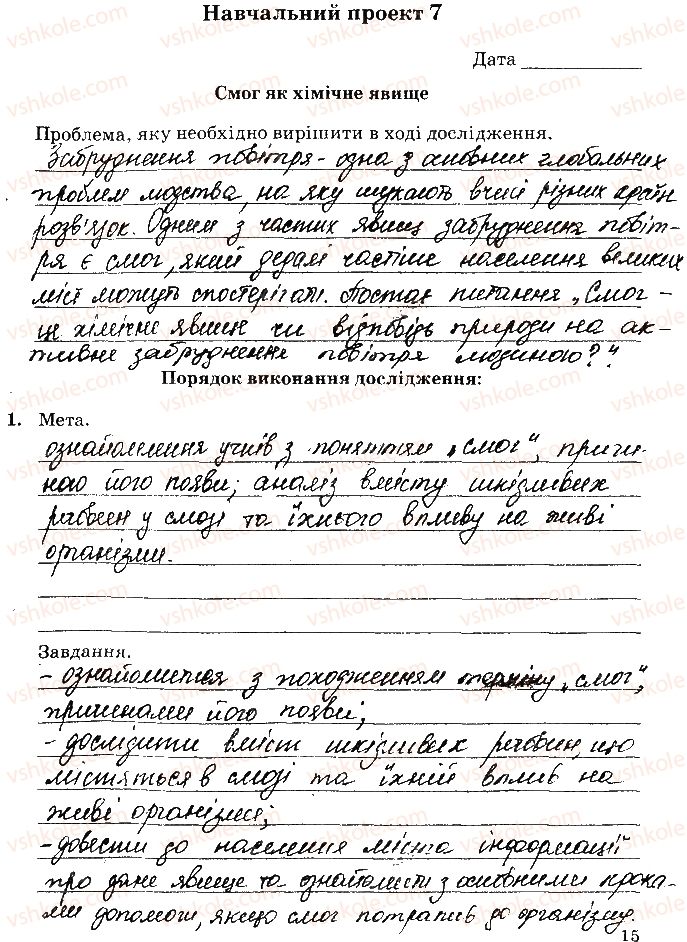 Навчальний проект 7
Дата
Смог як хімічне явище
Проблема, яку необхідно вирішити в ході дослідження.
Забруднення повітря - одна з основних глобальних
проблем людства, на яку шукають вчені різних країн
розв'язок. Одним з частих явищ забруднення повіт-
ря є смог, який дедалі частіше населення великих
міст можуть спостерігати. Постає питання „Смог -
це хімічне явище чи відповідь природи на ак-
тивне забруднення повітря людиною?"
Порядок виконання дослідження:
1. Мета.
ознайомлення учнів з поняттям „смог", причи-
ною його появи; аналіз вмісту шкідливих
речовин у смозі та їхнього впливу на живі
організми.
Завдання.
- ознайомитися з походженням терміну „смог",
причинами його появи;
- дослідити вміст шкідливих речовин, що
містяться в смозі та їхній вплив на
живі організми;
- довести до населення міста інформації
про дане явище та ознайомити з основними прока-
ми допомоги, якщо смог потрапив до організму.
15